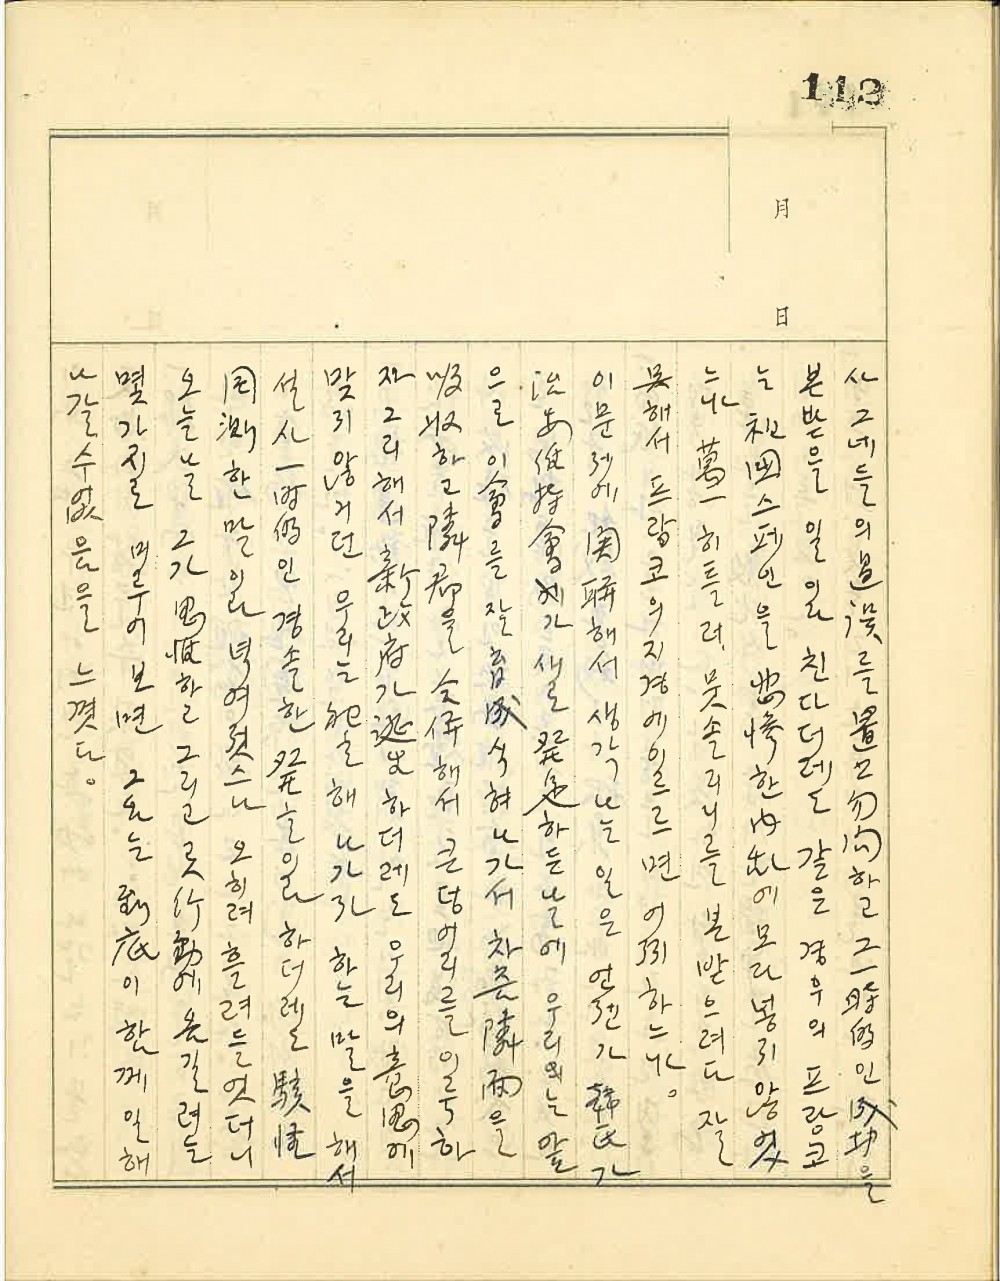 113
月
日
사 그네들의 過誤를 置之勿問하고 그 一時的인 成功을
본받을 일인 친다더레도 같은 경우의 프랑코
는 祖國 스페인을 悲慘한 內亂에 모라넣지 않었
느냐 萬一 히틀러, 뭇솔리니를 본받으려다 잘
못해서 프랑코의 지경에 이르르면 어찌하느냐。
이 문제에 関聯해서 생각나는 일은 언젠가 韓氏가
治安維持會가 새로 発足하든 날에 우리는 앞
으로 이 會를 잘 育成식혀 나가서 차츰 隣面을
吸收하고 隣郡을 合併해서 큰 덩어리를 이룩하
자 그리해서 新政府가 誕生하더레도 우리의 意思에
맞지 않거던 우리는 해 나가자 하는 말을 해서
설사 一時的인 경솔한 発言일 하더레도 駭怪
罔測한 말이라 녁여젓스나 오히려 흘려들엇더니
오늘날 그가 思惟하고 그리고 行動에 옴길려는
몇가지로 미루어 보면 그와는 到底이 함께 일해
나갈 수 없음을 느꼇다。